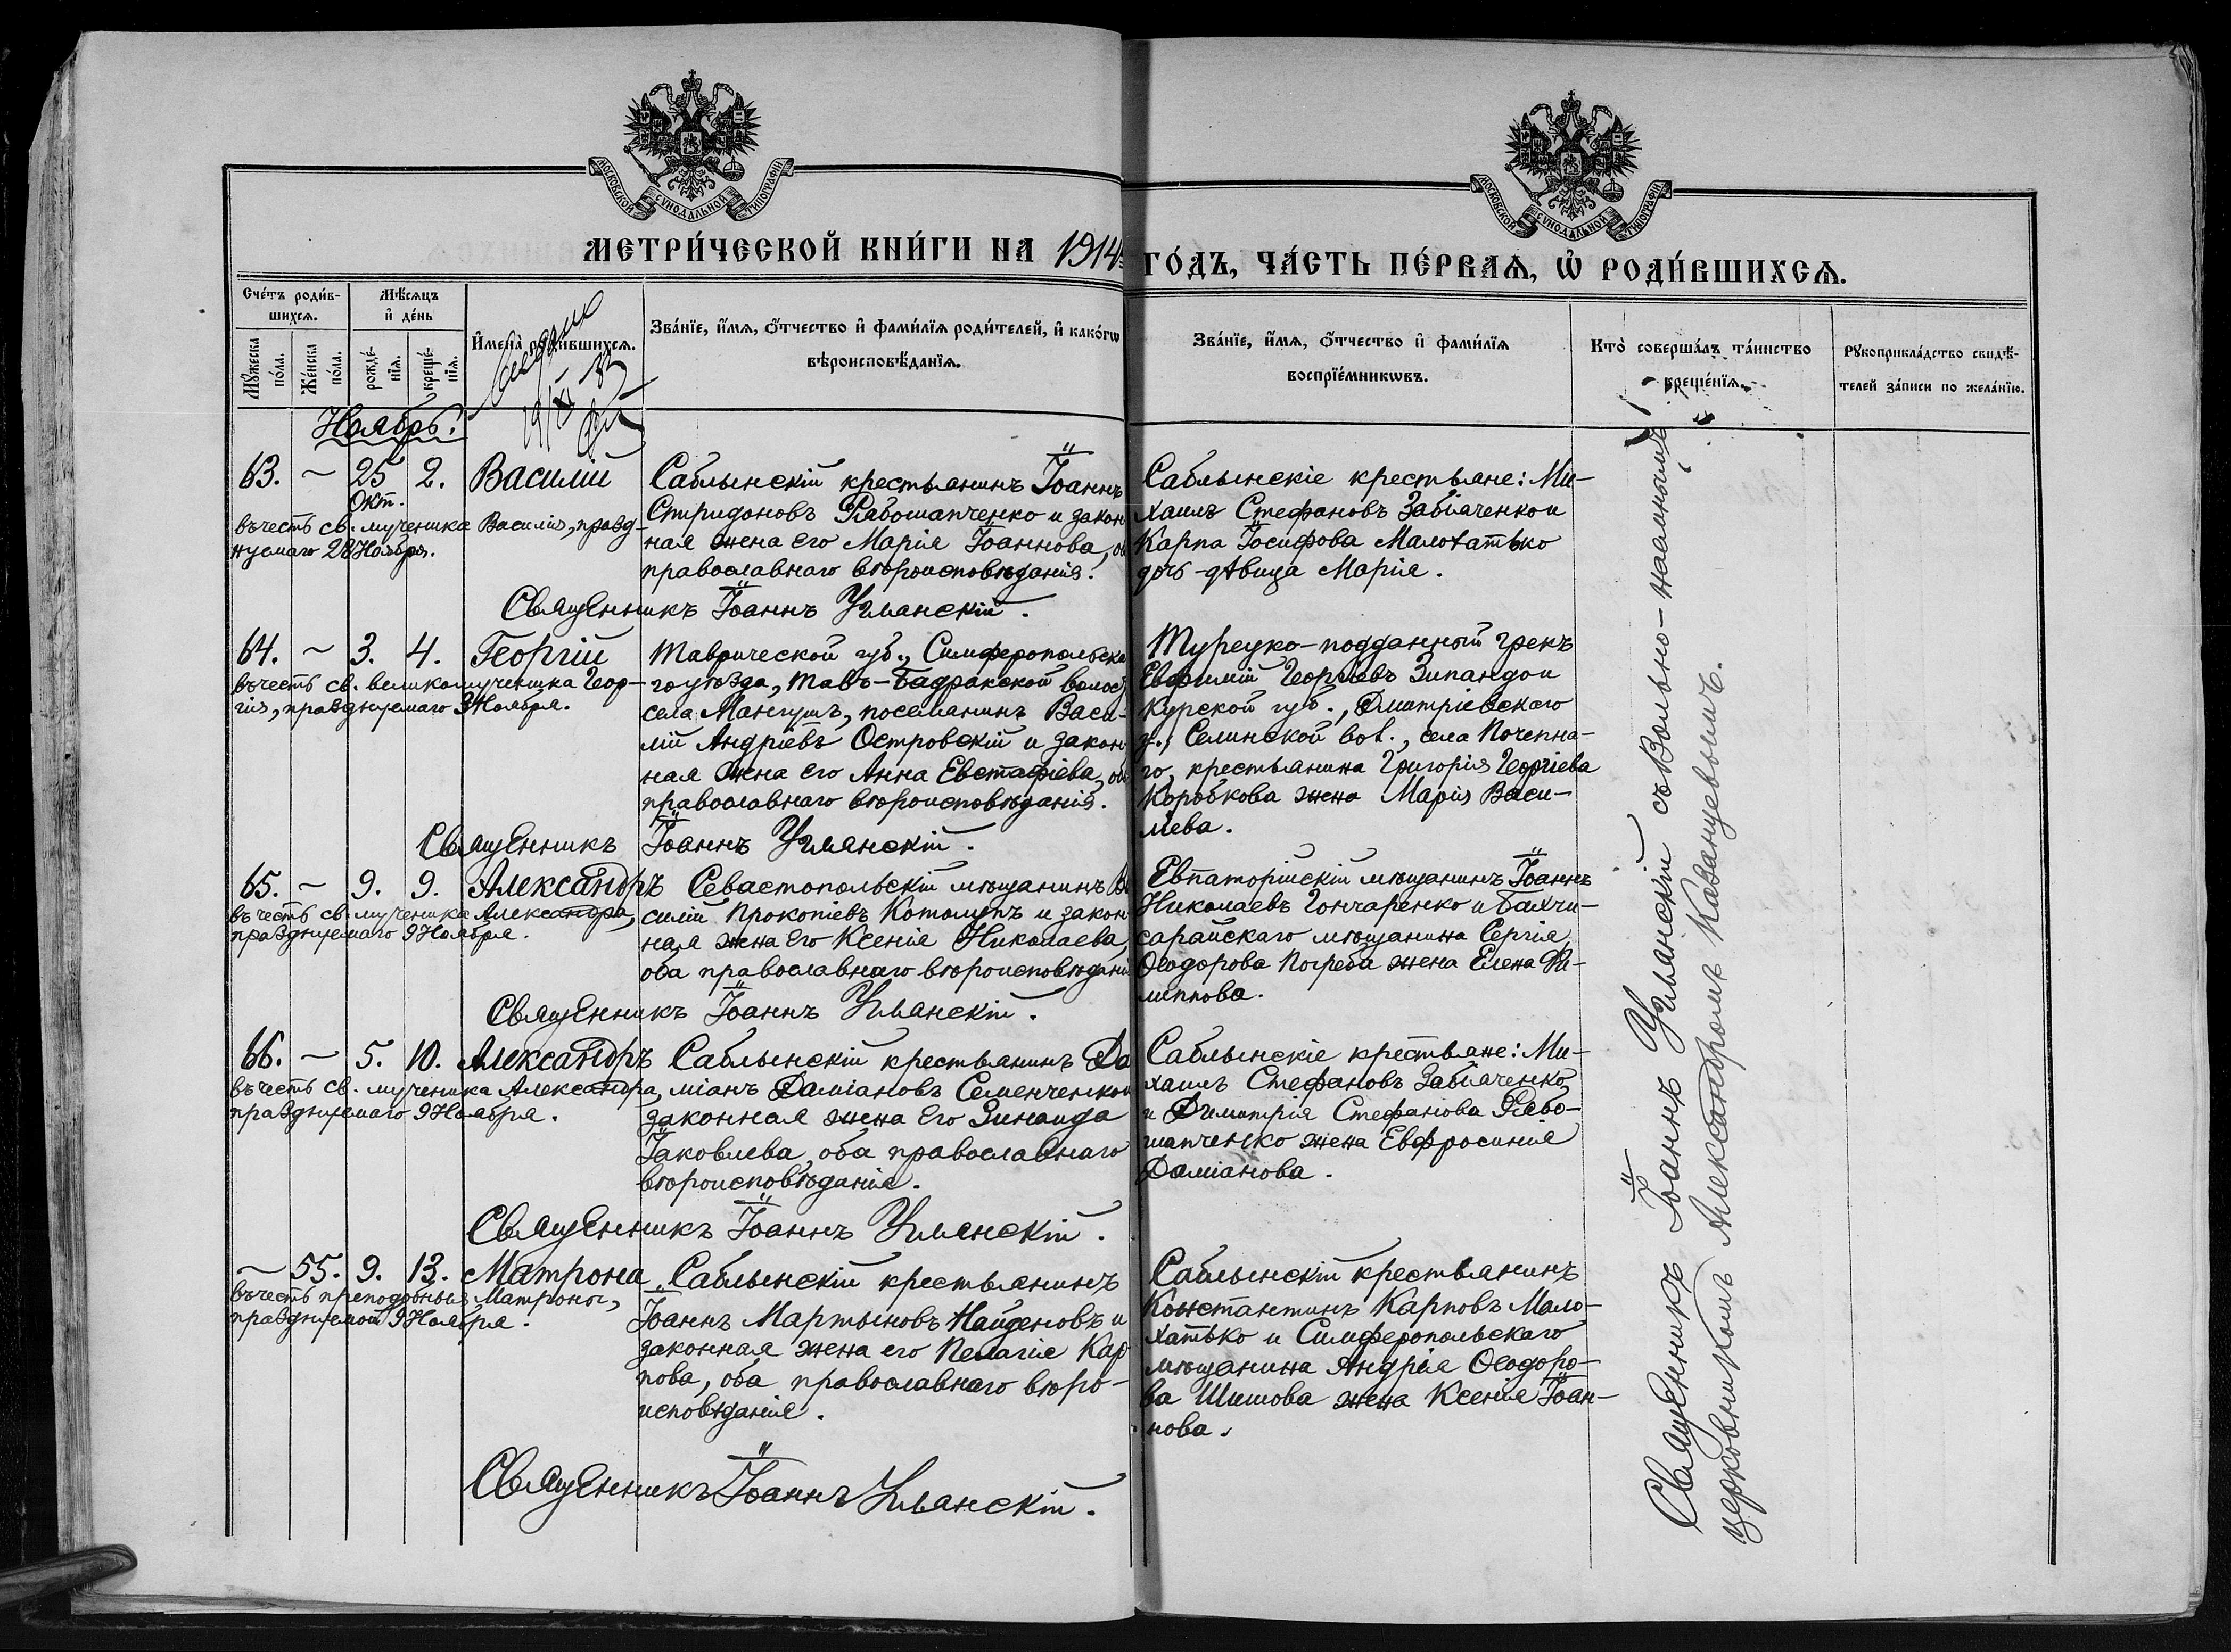 МОСКОВСКОЙ СУНОДАЛЬНОЙ ТИПОГРАФІИ
МОСКОВСКОЙ СУНОДАЛЬНОЙ ТИПОГРАФІИ
МЕТРИ́ЧЕСКОЙ КНИ́ГИ НА 1914 ГО́ДЪ, ЧА́СТЬ ПЕ́РВАѦ, Ѡ҆ РОДИ́ВШИХСѦ.
Сче́тъ роди́в-
шихсѧ.
Мꙋ́жеска по́ла.
Же́нска по́ла.
Мѣ́сѧцъ
и҆ де́нь
рожде́-нїѧ.
креще́-нїѧ.
И҆мена̀ роди́вшихсѧ.
Зва́нїе, и҆́мѧ, ѻ҆́тчество и҆ фами́лїѧ роди́телей, и҆ како́гѡ
вѣроисповѣ́данїѧ.
Зва́нїе, и҆́мѧ, ѻ҆́тчество и҆ фами́лїѧ
воспрїе́мникѡвъ.
Кто̀ соверша́лъ та́инство
креще́нїѧ.
Рꙋкоприкла́дство свидѣ́-
телей за́писи по жела́нїю.
Ноябрь.
63. – 25 Окт. 2. Василій
въ честь св. мученика Василія, празд-
нуемаго 28 Ноября.
Саблынскій крестьянинъ Іоаннъ
Спиридоновъ Рябошапченко и закон
ная жена его Марія Іоаннова, об
православнаго вѣроисповѣданія.
Саблынскіе крестьяне: Ми-
хаилъ Стефановъ Забіяченко и
Карпа Іосифова Малохатько
дочь-дѣвица Марія.
Священникъ Іоаннъ Уманскій.
64. – 3. 4. Георгій
въ честь св. великомученика Геор-
гія, празднуемаго 3 Ноября.
Таврической губ., Симферопольска
го уѣзда, Тавъ-Бадракской волос
села Мангушъ, поселянинъ Васи-
лій Андріевъ Островскій и закон
ная жена его Анна Евстафіева, об
православнаго вѣроисповѣданія.
Турецко-подданный грекъ
Евфимій Георгіевъ Зипандо и
Курской губ., Дмитріевскаго
у., Селинской вол., села Почепна-
го, крестьянина Григорія Георгіева
Коробкова жена Марія Васи-
лева.
Священникъ Іоаннъ Уманскій.
65. – 9. 9. Александръ
въ честь св. мученика Александра,
празднуемаго 9 Ноября.
Севастопольскій мѣщанинъ Ва
силій Прокопіевъ Котолупъ и закон
ная жена его Ксенія Николаева,
оба православнаго вѣроисповѣдани
Евпаторійскій мѣщанинъ Іоаннъ
Николаевъ Гончаренко и Бахчи-
сарайскаго мѣщанина Сергія
Ѳеодорова Погреба жена Елена Фи-
липпова.
Священникъ Іоаннъ Уманскій.
66. – 5. 10. Александръ
въ честь св. мученика Александра,
празднуемаго 9 Ноября.
Саблынскій крестьянинъ Да
міанъ Даміановъ Семенченко и
законная жена его Зинаида
Іаковлева, оба православнаго
вѣроисповѣданія.
Саблынскіе крестьяне: Ми-
хаилъ Стефановъ Забіяченко
и Димитрія Стефанова Рябо-
шапченко жена Евфросинія
Даміанова.
Священникъ Іоаннъ Уманскій.
– 55. 9. 13. Матрона
въ честь преподобныя Матроны,
празднуемой 9 Ноября.
Саблынскій крестьянинъ
Іоаннъ Мартыновъ Найденовъ и
законная жена его Пелагія Кар
пова, оба православнаго вѣро-
исповѣданія.
Саблынскій крестьянинъ
Константинъ Карповъ Мало-
хатько и Симферопольскаго
мѣщанина Андрія Ѳеодоро-
ва Шишова жена Ксенія Іоан-
нова.
Священникъ Іоаннъ Уманскій.
Священникъ Іоаннъ Уманскій съ Вольно-наемнымъ
церковникомъ Александромъ Казанцевымъ.